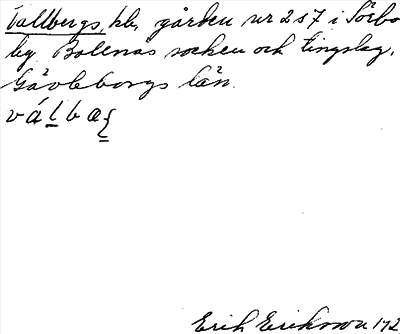 Vallbergs, hb, gården nr 2 s 7 i Sörbo
by Bollnäs socken och tingslag,
Gävleborgs län.
válbaς
Erik Erikson 192